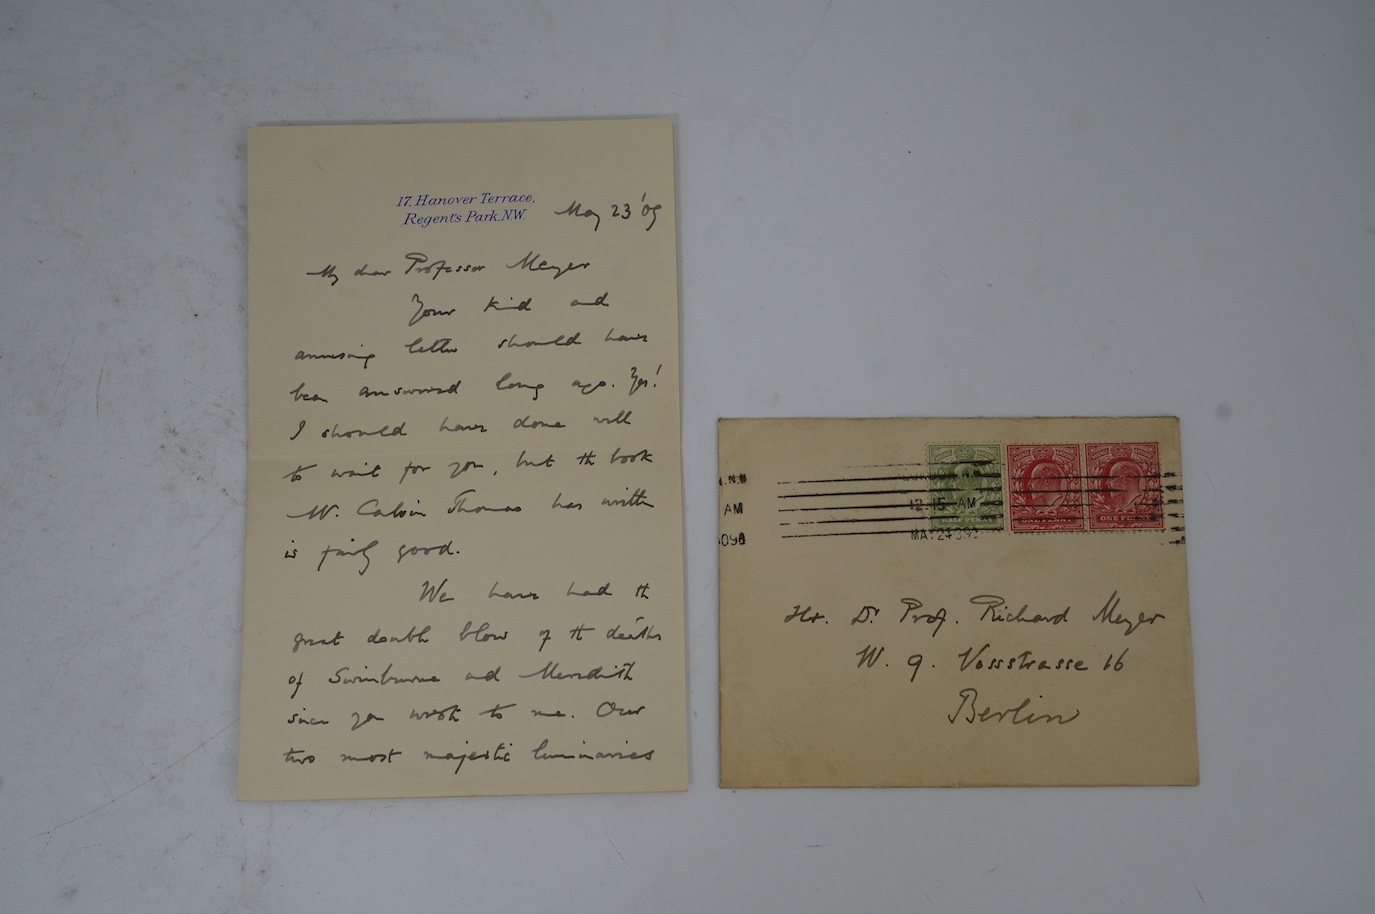 17, Hanover Terrace,
Regent's Park, N.W.
May 23 '09
My dear Professor Meyer
Your kind and
amusing letter should have
been answered long ago. Yes!
I should have done well
to wait for you, but the book
Mr. Calvin Thomas has written
is fairly good.
We have had the
great double blow of the deaths
of Swinburne and Meredith
since you wrote to me. Our
two most majestic luminaries
N.W
AM
09
LONDON. N.W
12.15 AM
MAY 24 09
HALF PENNY
ONE PENNY
ONE PENNY
Hr. Dr. Prof. Richard Meyer
W. 9. Vossstrasse 16
Berlin